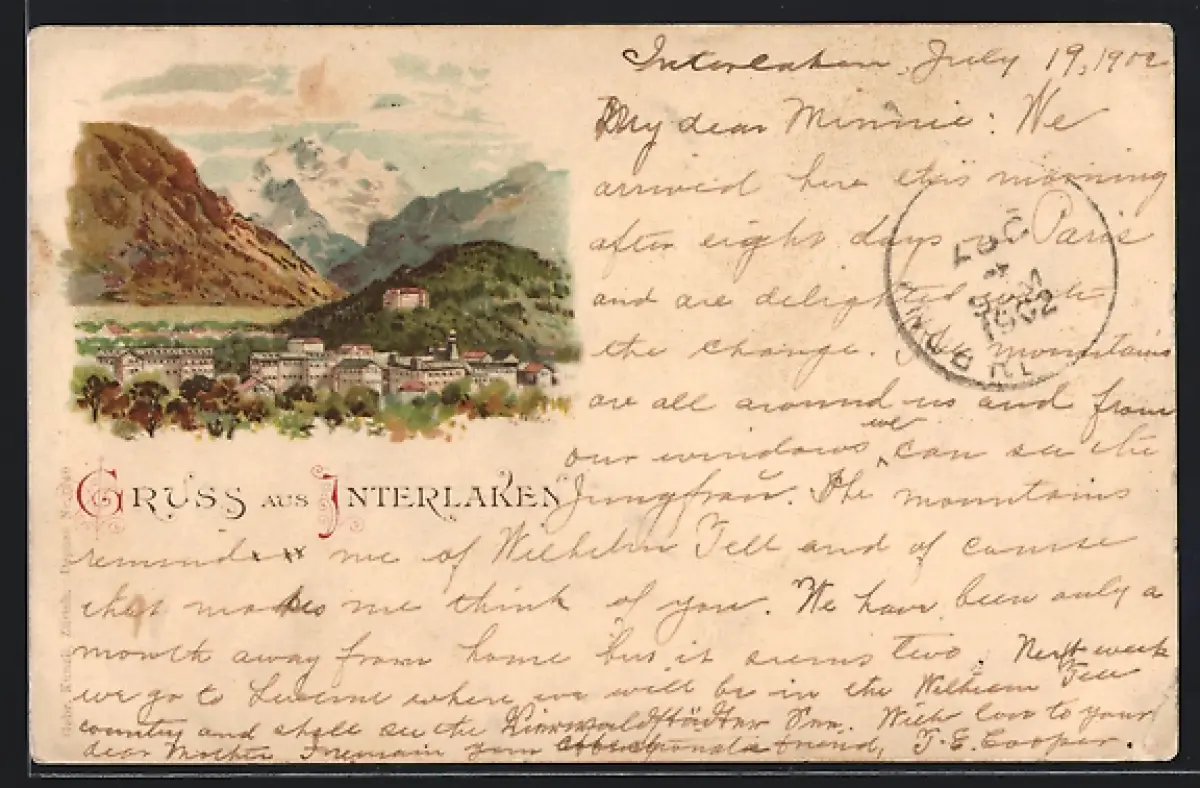 Interlaken, July 19, 1902
My dear Minnie: We
arrived here this morning
after eight days in Paris
and are delighted with
the change. The mountains
are all around us and from
our windows we can see the
Jungfrau. The mountains
remind me of Wilhelm Tell and of course
that makes me think of you. We have been only a
month away from home but it seems two. Next week
we go to Luzerne where we will be in the Wilhelm Tell
country and shall see the Vierwaldstädter See. With love to your
dear Mother I remain your friend, J. E. Cooper.
GRUSS AUS INTERLAKEN
AUG
4
5 AM
1902